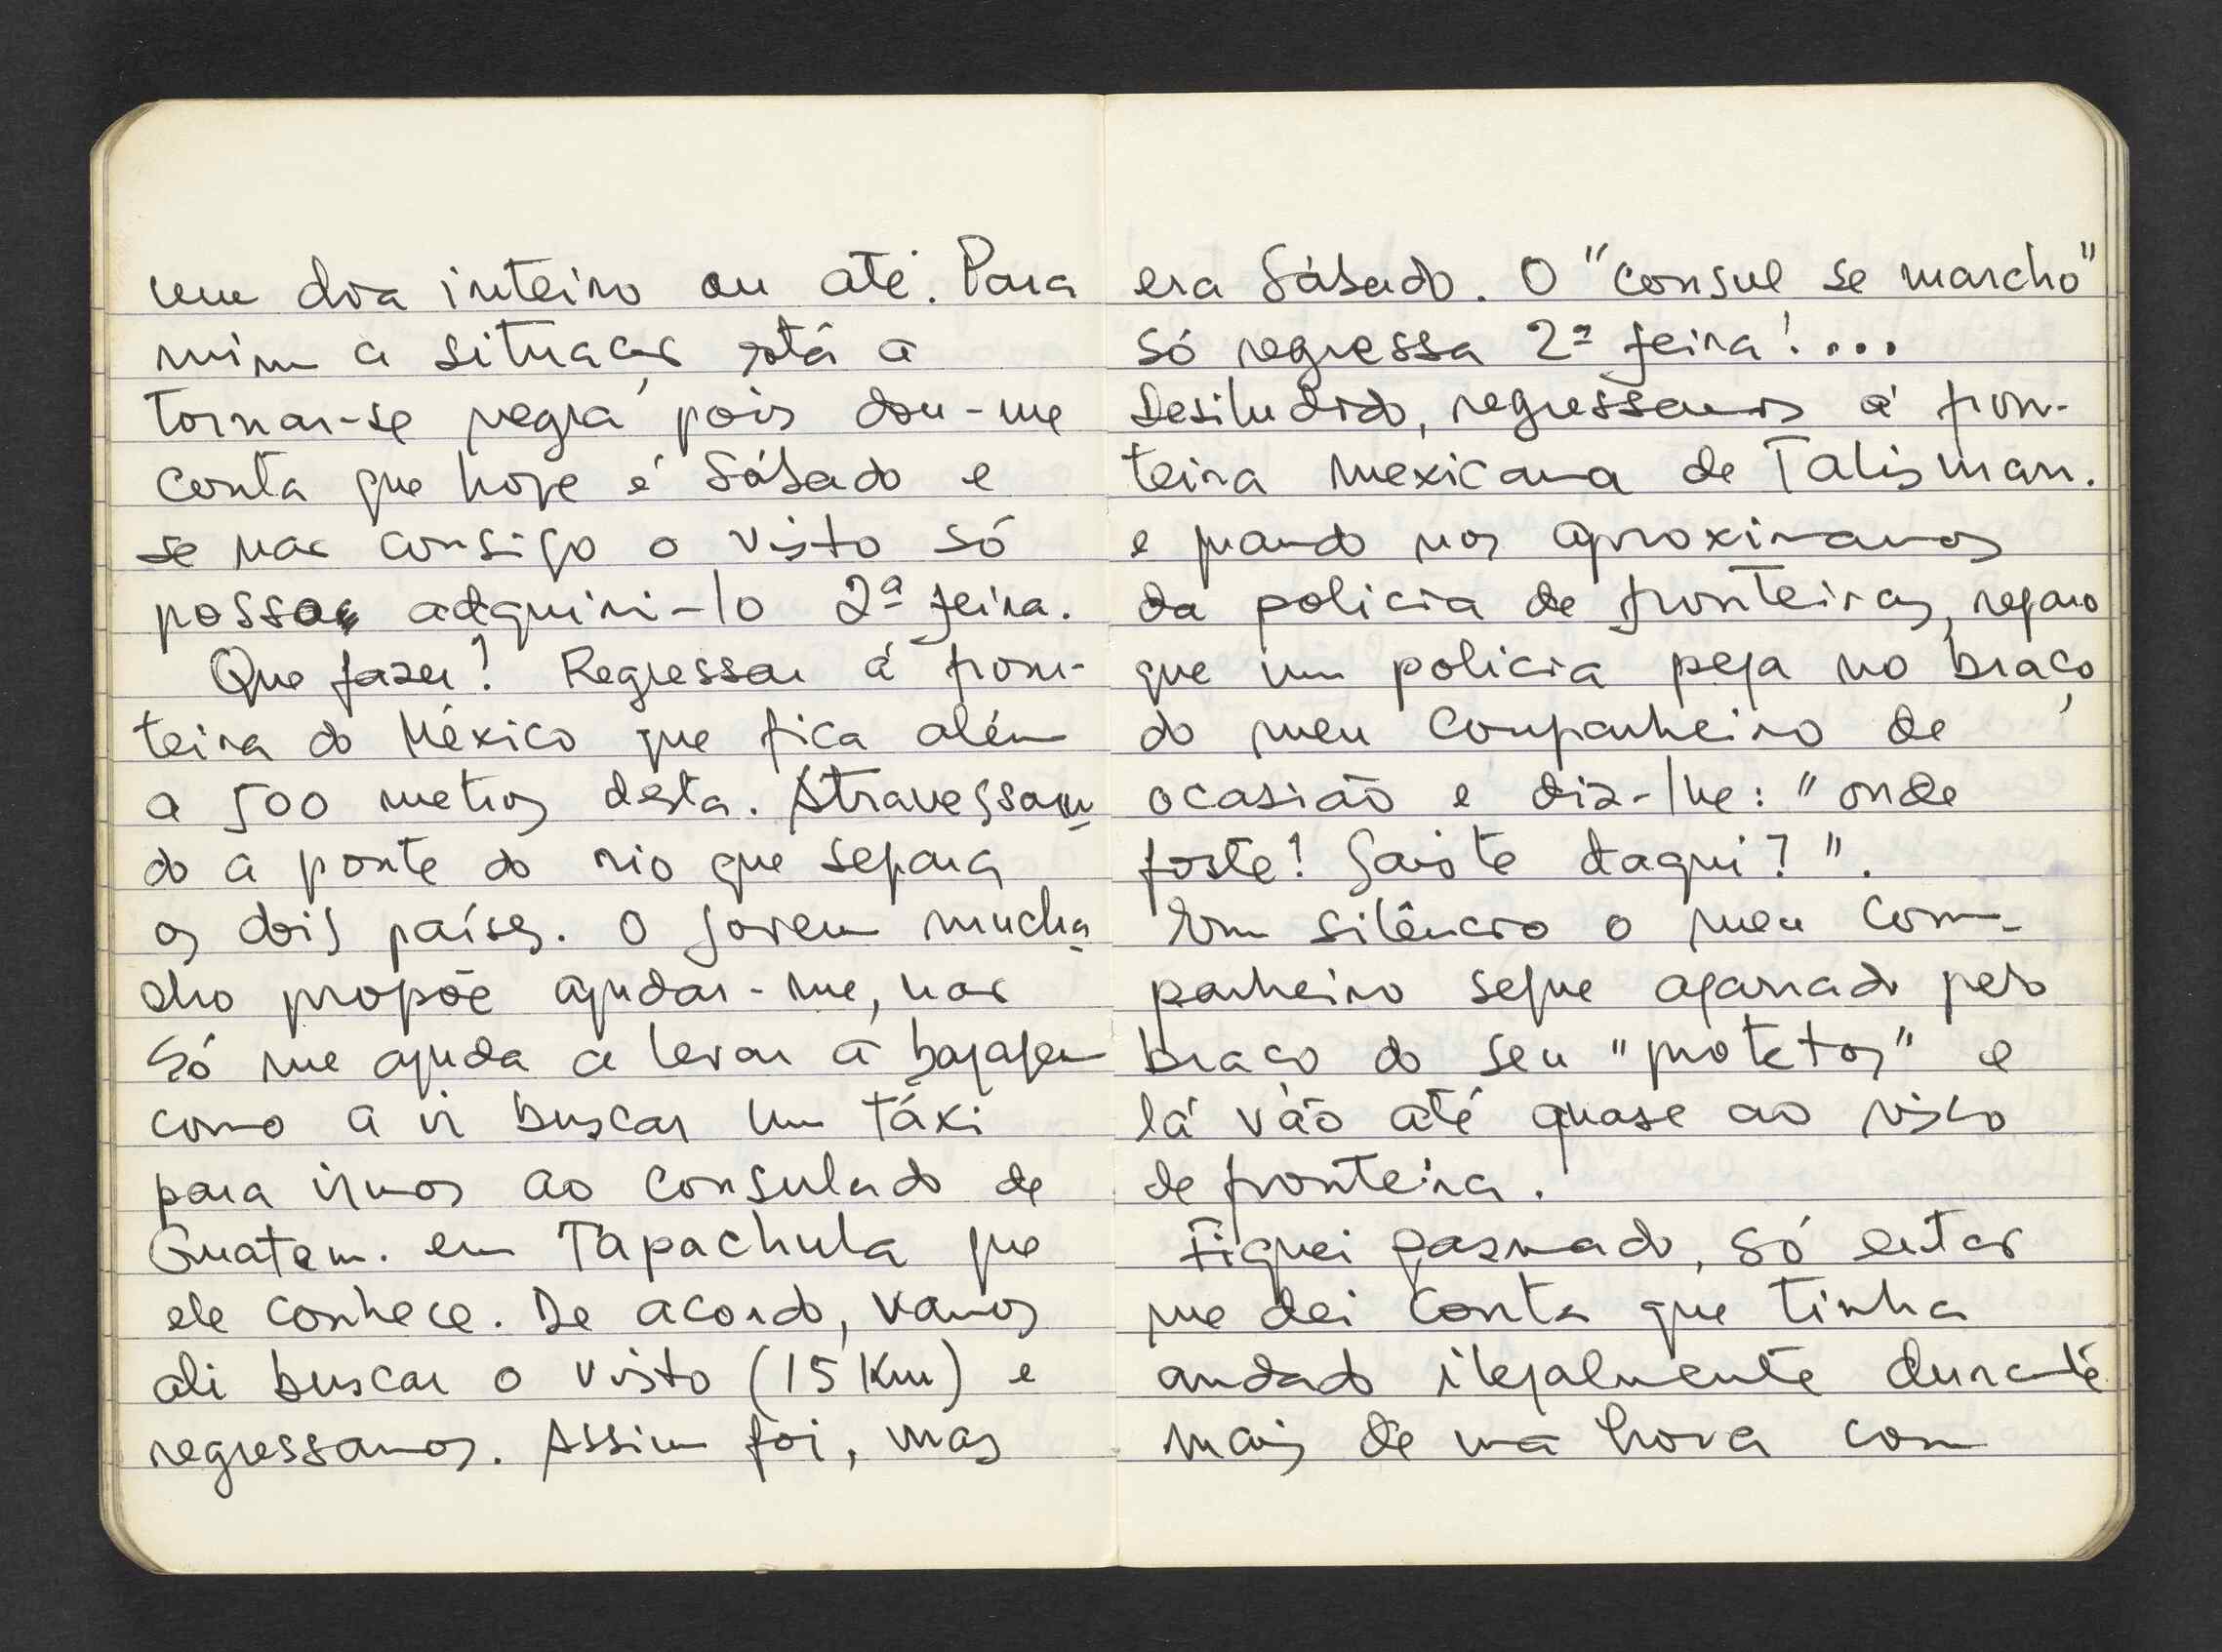 um dia inteiro ou até. Para
mim a situação está a
tornar-se negra pois dou-me
conta que hoje é Sábado e
se não consigo o visto só
posso adquiri-lo 2ª feira.
Que fazer? Regressar á fron-
teira do México que fica além
a 500 metros desta. Atravessan-
do a ponte do rio que separa
os dois países. O jovem mucha-
cho propõe ajudar-me, não
Só me ajuda a levar a bagagem
como a ir buscar um táxi
para irmos ao Consulado de
Guatem. em Tapachula que
ele conhece. De acordo, vamos
ali buscar o visto (15 Km) e
regressamos. Assim foi, mas
era Sábado. O "consul se marchó"
Só regressa 2ª feira!...
Desiludido, regressamos á fron-
teira mexicana de Talisman.
e quando nos aproximamos
da policia de fronteiras, reparo
que um policia pega no braço
do meu companheiro de
ocasião e diz-lhe: "onde
foste? Saiste daqui?".
Em silêncio o meu com-
panheiro segue agarrado pelo
braço do seu "protetor" e
lá vão até quase ao risco
de fronteira.
Fiquei pasmado, só então
me dei conta que tinha
andado ilegalmente durante
mais de uma hora com